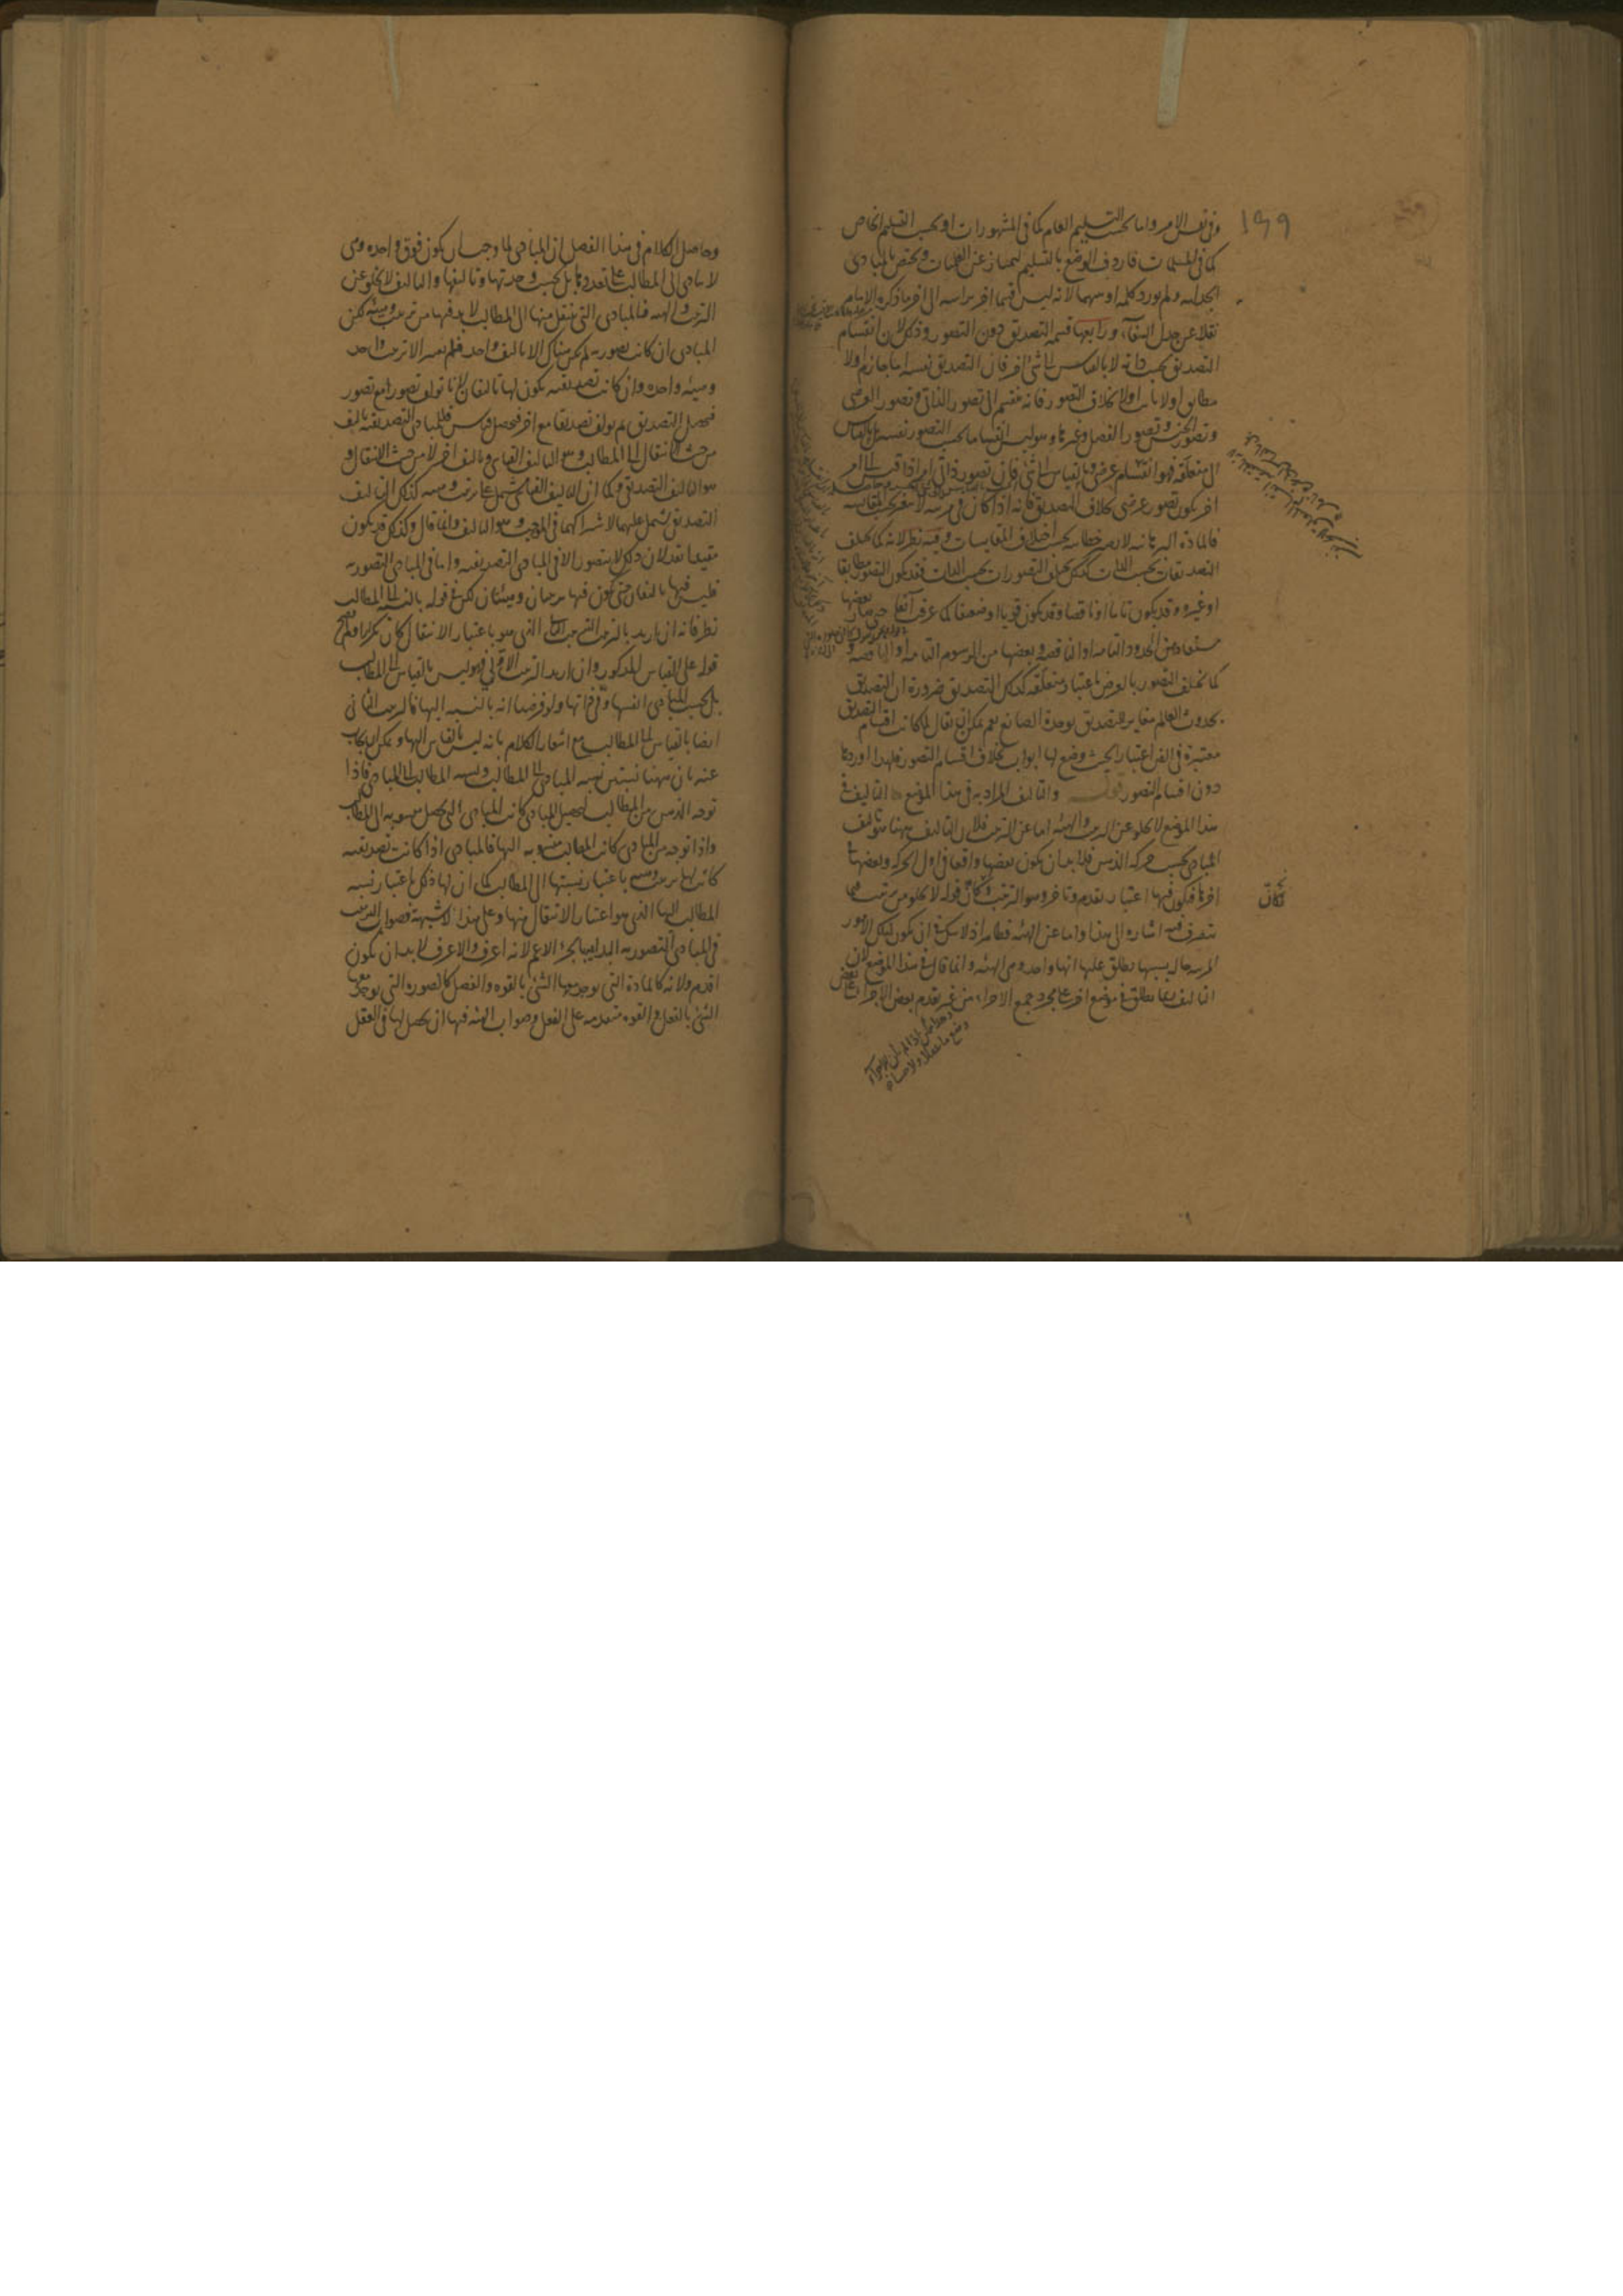 ١٩٩
وفى نفس الامر واما بحسب التسليم العام كما فى المشهورات او بحسب التسليم الخاص
كما فى المسلمات فاردف الوضع بالتسليم ليمتاز عن الظنيات ويختص بالمبادى
الجدلية ولم يورد كلمة او بينهما لانه ليس قسما اخر براسه الى اخر ما ذكره الامام
نقلا عن جدل الشفاء ورابعها قسمة التصديق دون التصور وذلك لان انقسام
التصديق بحسب ذاته لا بالقياس الى شئ اخر فان التصديق نفسه اما جازم اولا
مطابق اولا ثابت اولا بخلاف التصور فانه ينقسم الى تصور الذاتى وتصور العرضى
وتصور الجنس وتصور الفصل وغيرها وليست انقساما بحسب التصور نفسه بل بالقياس
الى متعلقه فهو انقسام عرضى وبالقياس الى شئ فان تصور ذاتى امر اذا قيس الى امر
اخر يكون تصور عرضى بخلاف التصديق فانه اذا كان فى مرتبة لا يتغير بحسب المقايسة
فالمادة البرهانية لا تصير خطابية بحسب اختلاف المقايسات وفيه نظر لانه كما يختلف
التصديقات بحسب الذات كذلك يختلف التصورات بحسب الذات فقد يكون التصور مطابقا
او غيره وقد يكون تاما او ناقصا وقد يكون قويا او ضعيفا كما عرفت آنفا حتى صار بعضها
مستفاد من الحدود التامة او الناقصة وبعضها من الرسوم التامة او الناقصة و
كما يختلف التصور بالعرض باعتبار متعلقه كذلك التصديق ضرورة ان التصديق
بحدوث العالم مغاير للتصديق بوحدة الصانع نعم يمكن ان يقال لما كانت اقسام التصديق
معتبرة فى الفن اعتبارا بحيث وضع لها ابواب بخلاف اقسام التصور فلهذا اوردها
دون اقسام التصور قوله والتاليف المراد به فى هذا الموضع التاليف فى
هذا الموضع لا يخلو عن الترتيب والهيئة اما عن الترتيب فلان التاليف ههنا هو تاليف
المبادى بحسب حركة الذهن فلا بد ان يكون بعضها واقعا فى اول الحركة وبعضها فى
اخرها فيكون فيها اعتبار تقدم وتاخر وهو الترتيب وكان قوله لا يخلو من ترتيب فيما
يتصرف فيه اشارة الى هذا واما عن الهيئة فظاهر اذ لا شك فى ان يكون لتلك الامور
المرتبة حالة بسببها يطلق عليها انها واحدة وهى الهيئة وانما قال فى هذا الموضع لان
التاليف ربما يطلق فى موضع اخر على مجرد جمع الاجزاء من غير تقدم بعض الاجزاء على بعض
وكان
وحاصل الكلام فى هذا الفصل ان المبادى لما وجب ان يكون فوق واحدة وهى
لا يتادى الى المطالب على تعددها بل بحسب وحدتها وتاليفها والتاليف لا يخلو عن
الترتيب والهيئة فالمبادى التى ينتقل منها الى المطالب لا بد فيها من ترتيب وهيئة لكن
المبادى ان كانت تصورية لم يكن هناك الا تاليف واحد فلم يعتبر الا ترتيب واحد
وهيئة واحدة وان كانت تصديقية يكون لها تاليفان لانا نؤلف تصورا مع تصور
فيحصل التصديق ثم نؤلف تصديقا مع اخر فيحصل قياس فللمبادى التصديقية تاليف
من حيث الانتقال الى المطالب وهو التاليف القياسى وتاليف اخر لا من حيث الانتقال و
هو التاليف التصديقى وكما ان التاليف القياسى يشتمل على ترتيب وهيئة كذلك التاليف
التصديقى يشتمل عليهما لاشتراكهما فى الموجب وهو التاليف وانما قال وكذلك قد يكون
مقيدا بقد لان ذلك لا يتصور الا فى المبادى التصديقية واما فى المبادى التصورية
فليس فيها تاليفان حتى يكون فيها ترتيبان وهيئتان لكن فى قوله بالنسبة الى المطالب
نظر فانه ان اريد بالترتيب الترتيب الثانى الذى هو باعتبار الانتقال كان تكرارا ولم يصح
قوله على القياس المذكور وان اريد الترتيب الاول فهو ليس بالقياس الى المطالب
بل بحسب المبادى انفسها وفى ذاتها ولو فرضنا انه بالنسبة اليها فالترتيب الثانى
ايضا بالقياس الى المطالب مع اشعار الكلام بانه ليس بالقياس اليها ويمكن ان يجاب
عنه بان ههنا نسبتين نسبة المبادى الى المطالب ونسبة المطالب الى المبادى فاذا
توجه الذهن من المطالب لتحصيل المبادى كانت المبادى التى تحصل منسوبة الى المطالب
واذا توجه من المبادى كانت المطالب منسوبة اليها فالمبادى اذا كانت تصديقية
كانت لها ترتيب وهيئة باعتبار نسبتها الى المطالب كما ان لها ذلك باعتبار نسبة
المطالب اليها الذى هو اعتبار الانتقال منها وعلى هذا لا شبهة وصواب الترتيب
فى المبادى التصورية البداية بالجزء الاعم لانه اعرف والاعرف لا بد ان يكون
اقدم ولانه كالمادة التى يوجد بها الشئ بالقوة والفصل كالصورة التى يوجد معها
الشئ بالفعل والقوة متقدمة على الفعل وصواب الهيئة فيها ان يحصل لها فى العقل